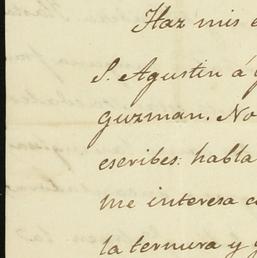 Haz mis
S. Agustin á
guzman. No
escribes: habla
me interesa
la ternura y